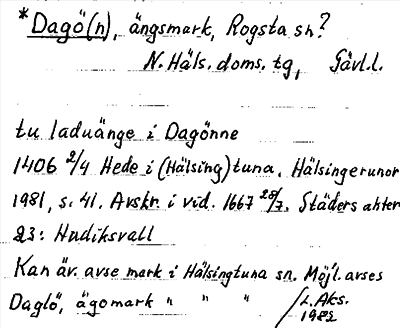 *Dagö(n), ängsmark, Rogsta sn?
N. Häls. doms. tg, Gävl.l.
tu laduänge i Dagönne
1406 2/4 Hede i (Hälsing)tuna. Hälsingerunor
1981, s. 41. Avskr i vid. 1667 28/7. Städers akter
23: Hudiksvall
Kan äv. avse mark i Hälsingtuna sn. Möjl. avses
Daglö, ägomark " " " /L. Aks.
1982